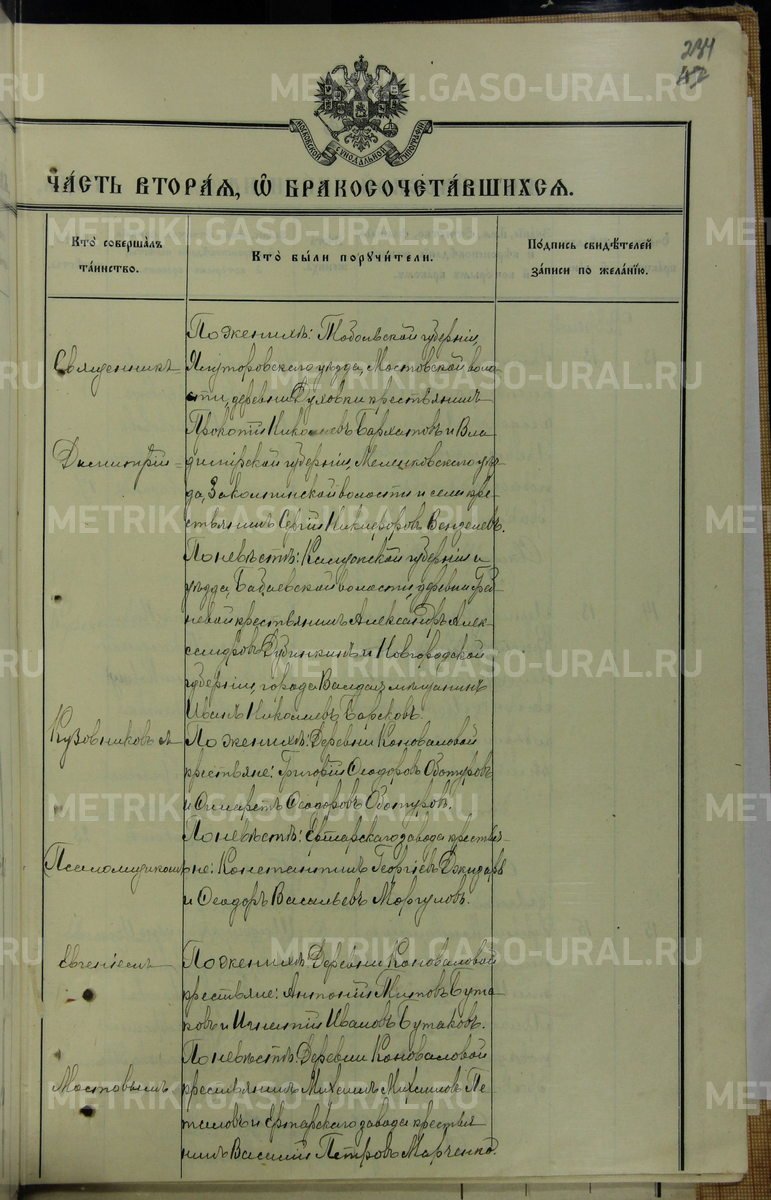 234
42
МОСКОВСКОЙ СѴНОДАЛЬНОЙ ТИПОГРАФІИ
ЧА́СТЬ ВТОРА́Я, Ѡ҆ БРАКОСОЧЕТА́ВШИХСЯ.
Кто̀ соверша́лъ та́инство.
Кто̀ бы́ли поручи́тели.
По́дпись свидѣ́телей за́писи по жела́нїю.
Священникъ
Димитрій
Кузовниковъ
Псаломщикомъ
Евгеніемъ
Мостовымъ
По женихѣ: Тобольской губерніи,
Ялуторовскаго уѣзда, Мостовской воло-
сти, деревни крестьянинъ
Прокопій Николаевъ Бархатовъ и Вла-
димірской губерніи, Меленковскаго уѣз-
да, Заколпинской волости и села кре-
стьянинъ Сергій Никифоровъ
По невѣстѣ: губерніи и
уѣзда, Бабаевской волости, деревни
крестьянинъ Александръ Алек-
сандровъ и Новгородской
губерніи, города Валдая мѣщанинъ
Иванъ Николаевъ Барсковъ.
По женихѣ: Деревни Коноваловой
крестьяне: Григорій Ѳеодоровъ Оботуровъ
и Ѳеодоровъ Оботуровъ.
По невѣстѣ: Ертарскаго завода крестья-
не: Константинъ Георгіевъ
и Ѳеодоръ Васильевъ Моргуновъ.
По женихѣ: Деревни Коноваловой
крестьяне: Антоній Титовъ Бута-
ковъ и Игнатій Ивановъ Бутаковъ.
По невѣстѣ: Деревни Коноваловой
крестьянинъ Михаилъ Михаиловъ
и Ертарскаго завода крестья-
нинъ Василій Петровъ Марченко.
METRIKI.GASO-URAL.RU